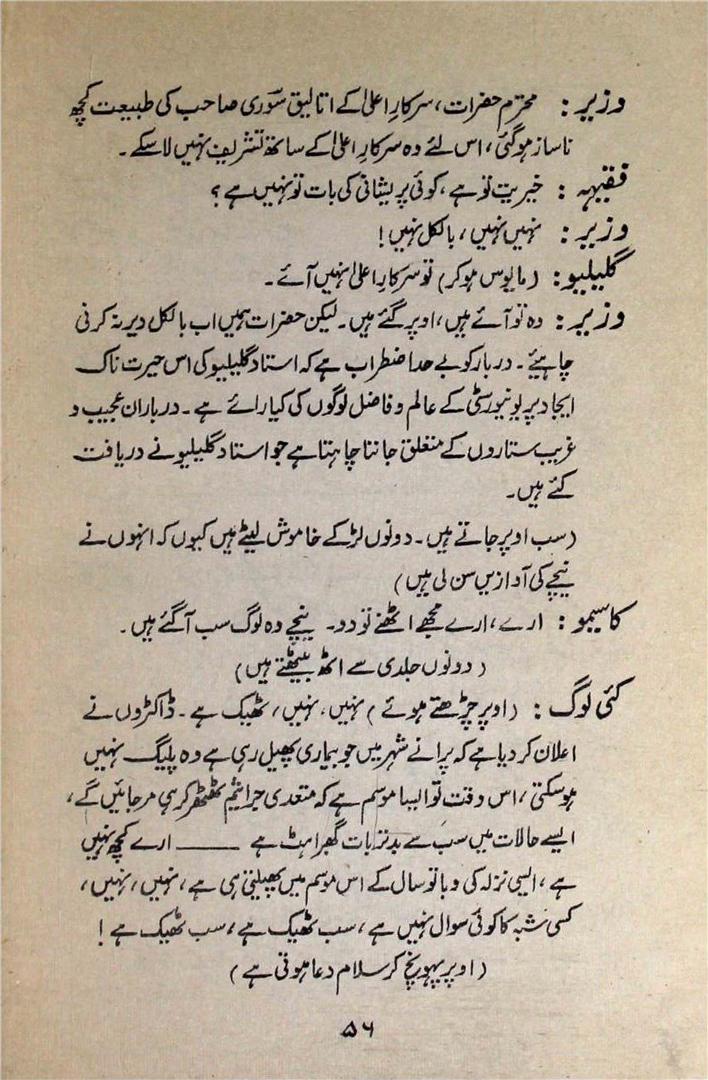 وزیر : محترم حضرات، سرکارِ اعلیٰ کے اتالیق سوری صاحب کی طبیعت کچھ
ناساز ہو گئی، اس لئے وہ سرکارِ اعلیٰ کے ساتھ تشریف نہیں لا سکے۔
فقیہہ : خیریت تو ہے، کوئی پریشانی کی بات تو نہیں ہے ؟
وزیر : نہیں نہیں، بالکل نہیں !
گلیلیو : (مایوس ہو کر) تو سرکارِ اعلیٰ نہیں آئے۔
وزیر : وہ تو آئے ہیں، اوپر گئے ہیں۔ لیکن حضرات ہمیں اب بالکل دیر نہ کرنی
چاہیئے۔ دربار کو بے حد اضطراب ہے کہ استاد گلیلیو کی اس حیرت ناک
ایجاد پر یونیورسٹی کے عالم و فاضل لوگوں کی کیا رائے ہے۔ درباران عجیب و
غریب ستاروں کے متعلق جاننا چاہتا ہے جو استاد گلیلیو نے دریافت
کئے ہیں۔
(سب اوپر جاتے ہیں۔ دونوں لڑکے خاموش لیٹے ہیں کیوں کہ انہوں نے
نیچے کی آوازیں سن لی ہیں)
کاسیمو : ارے، ارے مجھے اٹھنے تو دو۔ نیچے وہ لوگ سب آ گئے ہیں۔
(دونوں جلدی سے اٹھ بیٹھتے ہیں)
کئی لوگ : (اوپر چڑھتے ہوئے) نہیں، نہیں، ٹھیک ہے۔ ڈاکٹروں نے
اعلان کر دیا ہے کہ پرانے شہر میں جو بیماری پھیل رہی ہے وہ پلیگ نہیں
ہو سکتی، اس وقت تو ایسا موسم ہے کہ متعدی جراثیم ٹھٹھر کر ہی مر جائیں گے،
ایسے حالات میں سب سے بدتر بات گھبراہٹ ہے ——— ارے کچھ نہیں
ہے، ایسی نزلہ کی وبا تو سال کے اس موسم میں پھیلتی ہی ہے، نہیں، نہیں،
کسی شبہ کا کوئی سوال نہیں ہے، سب ٹھیک ہے، سب ٹھیک ہے !
(اوپر پہونچ کر سلام دعا ہوتی ہے)
۵۶